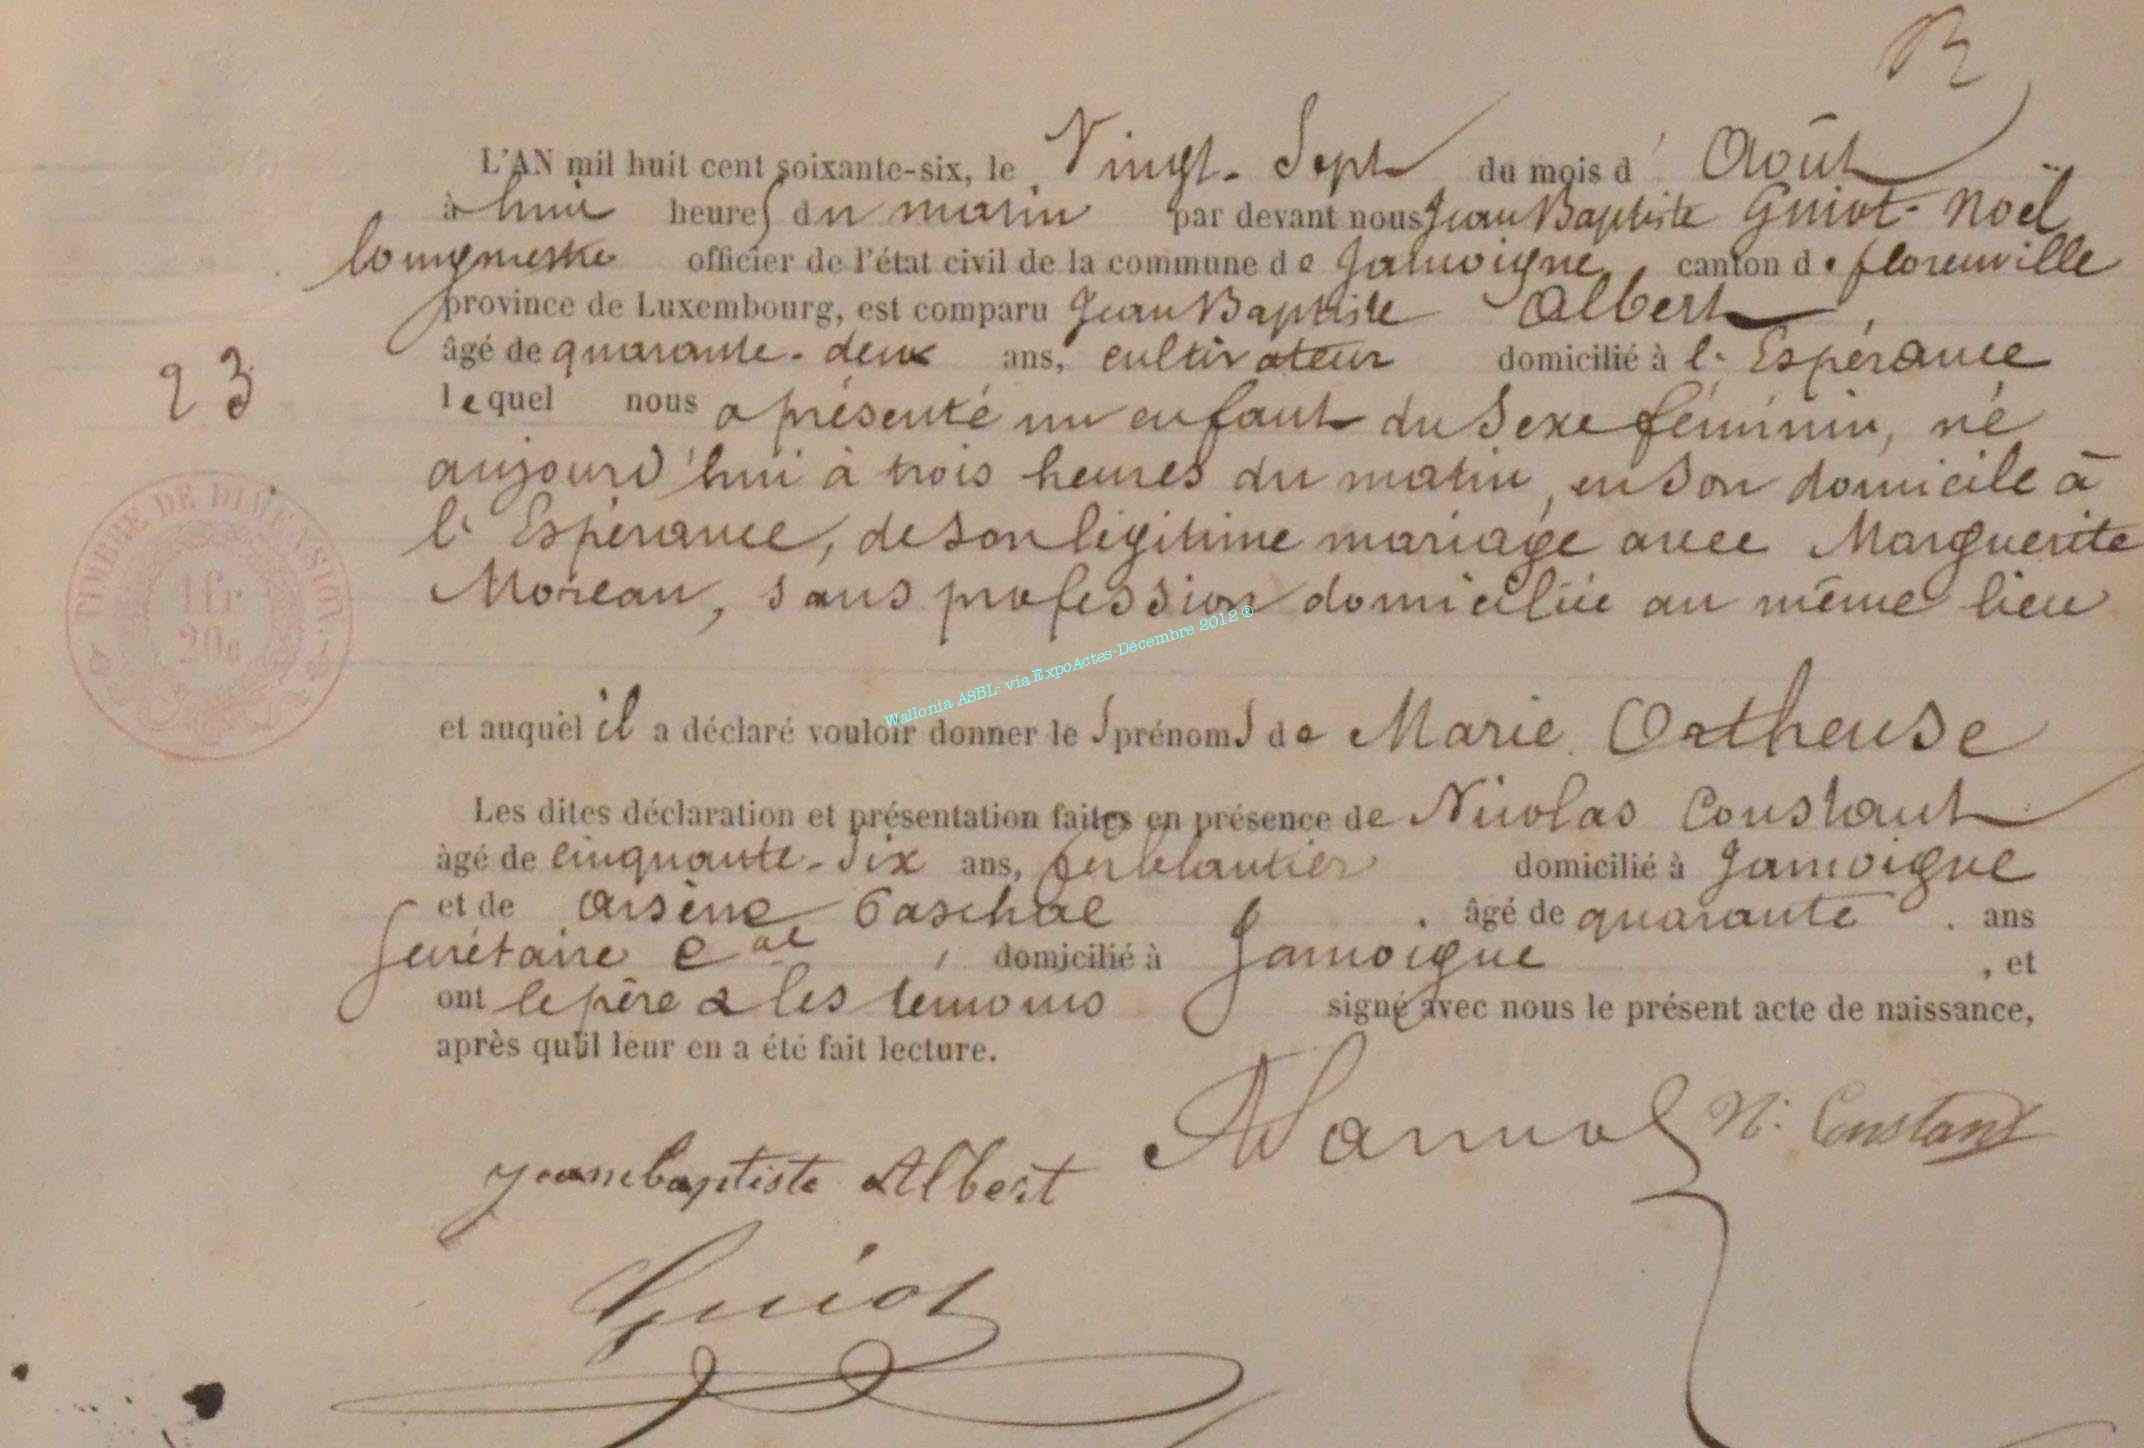 L'AN mil huit cent soixante-six, le Vingt-Sept du mois d' Août
à huit heures du matin par devant nous Jean Baptiste Guiot-Noël
bourgmestre officier de l'état civil de la commune de Jamoigne, canton de florenville
province de Luxembourg, est comparu Jean Baptiste Albert
âgé de quarante-deux ans, cultivateur domicilié à l'Espérance
lequel nous a présenté un enfant du Sexe féminin, né
23
aujourd'hui à trois heures du matin, en Son domicile à
l'Espérance, de Son légitime mariage avec Marguerite
Moreau, sans profession domiciliée au même lieu
TIMBRE DE DIMENSION
1 fr
20c
Wallonia ASBL- via ExpoActes-Décembre 2012 ®
et auquel il a déclaré vouloir donner les prénoms de Marie Ortheuse
Les dites déclaration et présentation faites en présence de Nicolas Constant
âgé de cinquante-Six ans, ferblantier domicilié à Jamoigne
et de Arsène Paschal âgé de quarante ans
Secrétaire cal, domicilié à Jamoigne, et
ont le père & les temoins signé avec nous le présent acte de naissance,
après qu'il leur en a été fait lecture.
N. Constant
jeanbaptiste Albert
Guiot